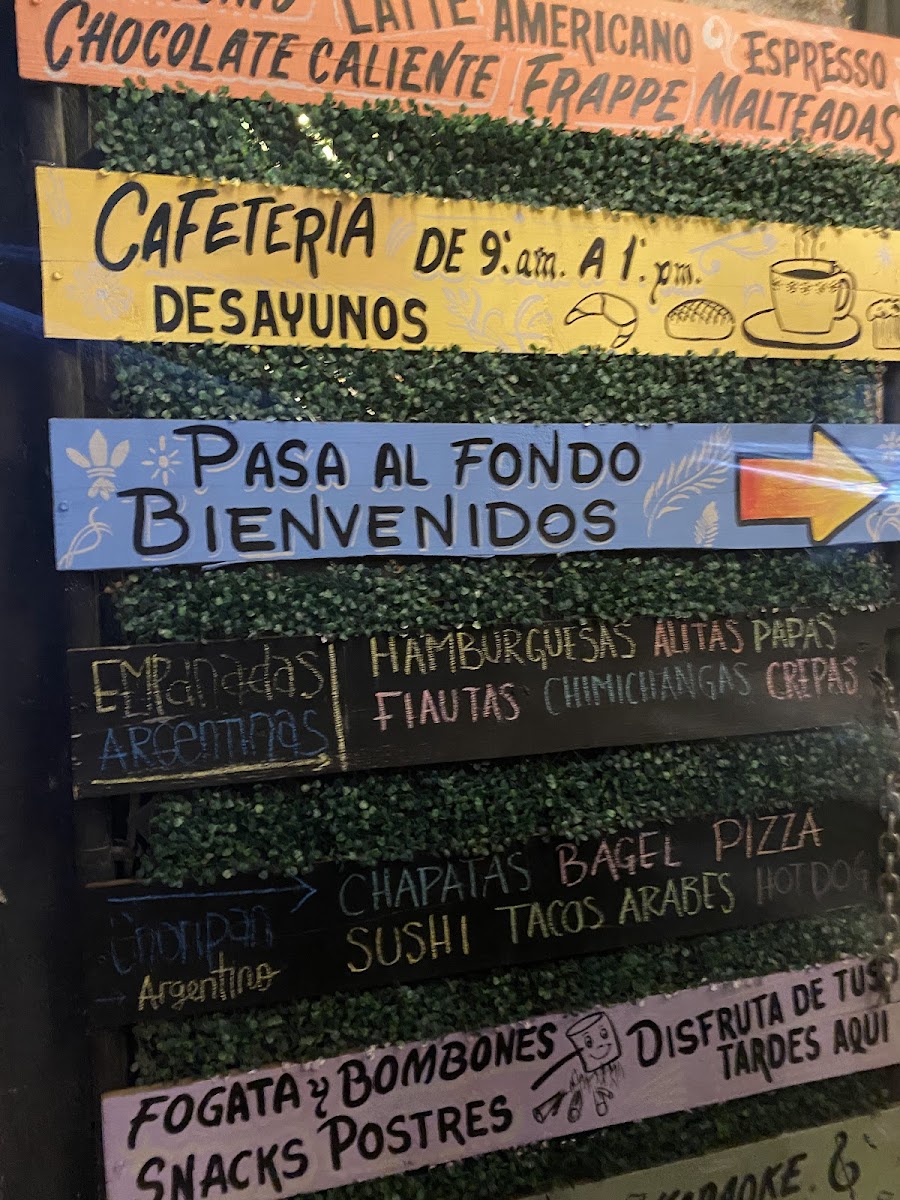 LATTE AMERICANO ESPRESSO
CHOCOLATE CALIENTE FRAPPE MALTEADAS
CAFETERIA DE 9:am. A 1:pm.
DESAYUNOS
PASA AL FONDO
BIENVENIDOS
EMPanadas
ARGentinas
HAMBURGUESAS ALITAS PAPAS
FlAUTAS CHIMICHANGAS CREPAS
Choripan
Argentino
CHAPATAS BAGEL PIZZA
SUSHI TACOS ARABES HOT DOG
FOGATA y BOMBONES
SNACKS POSTRES
DISFRUTA DE TUS
TARDES AQUI
KARAOKE. &